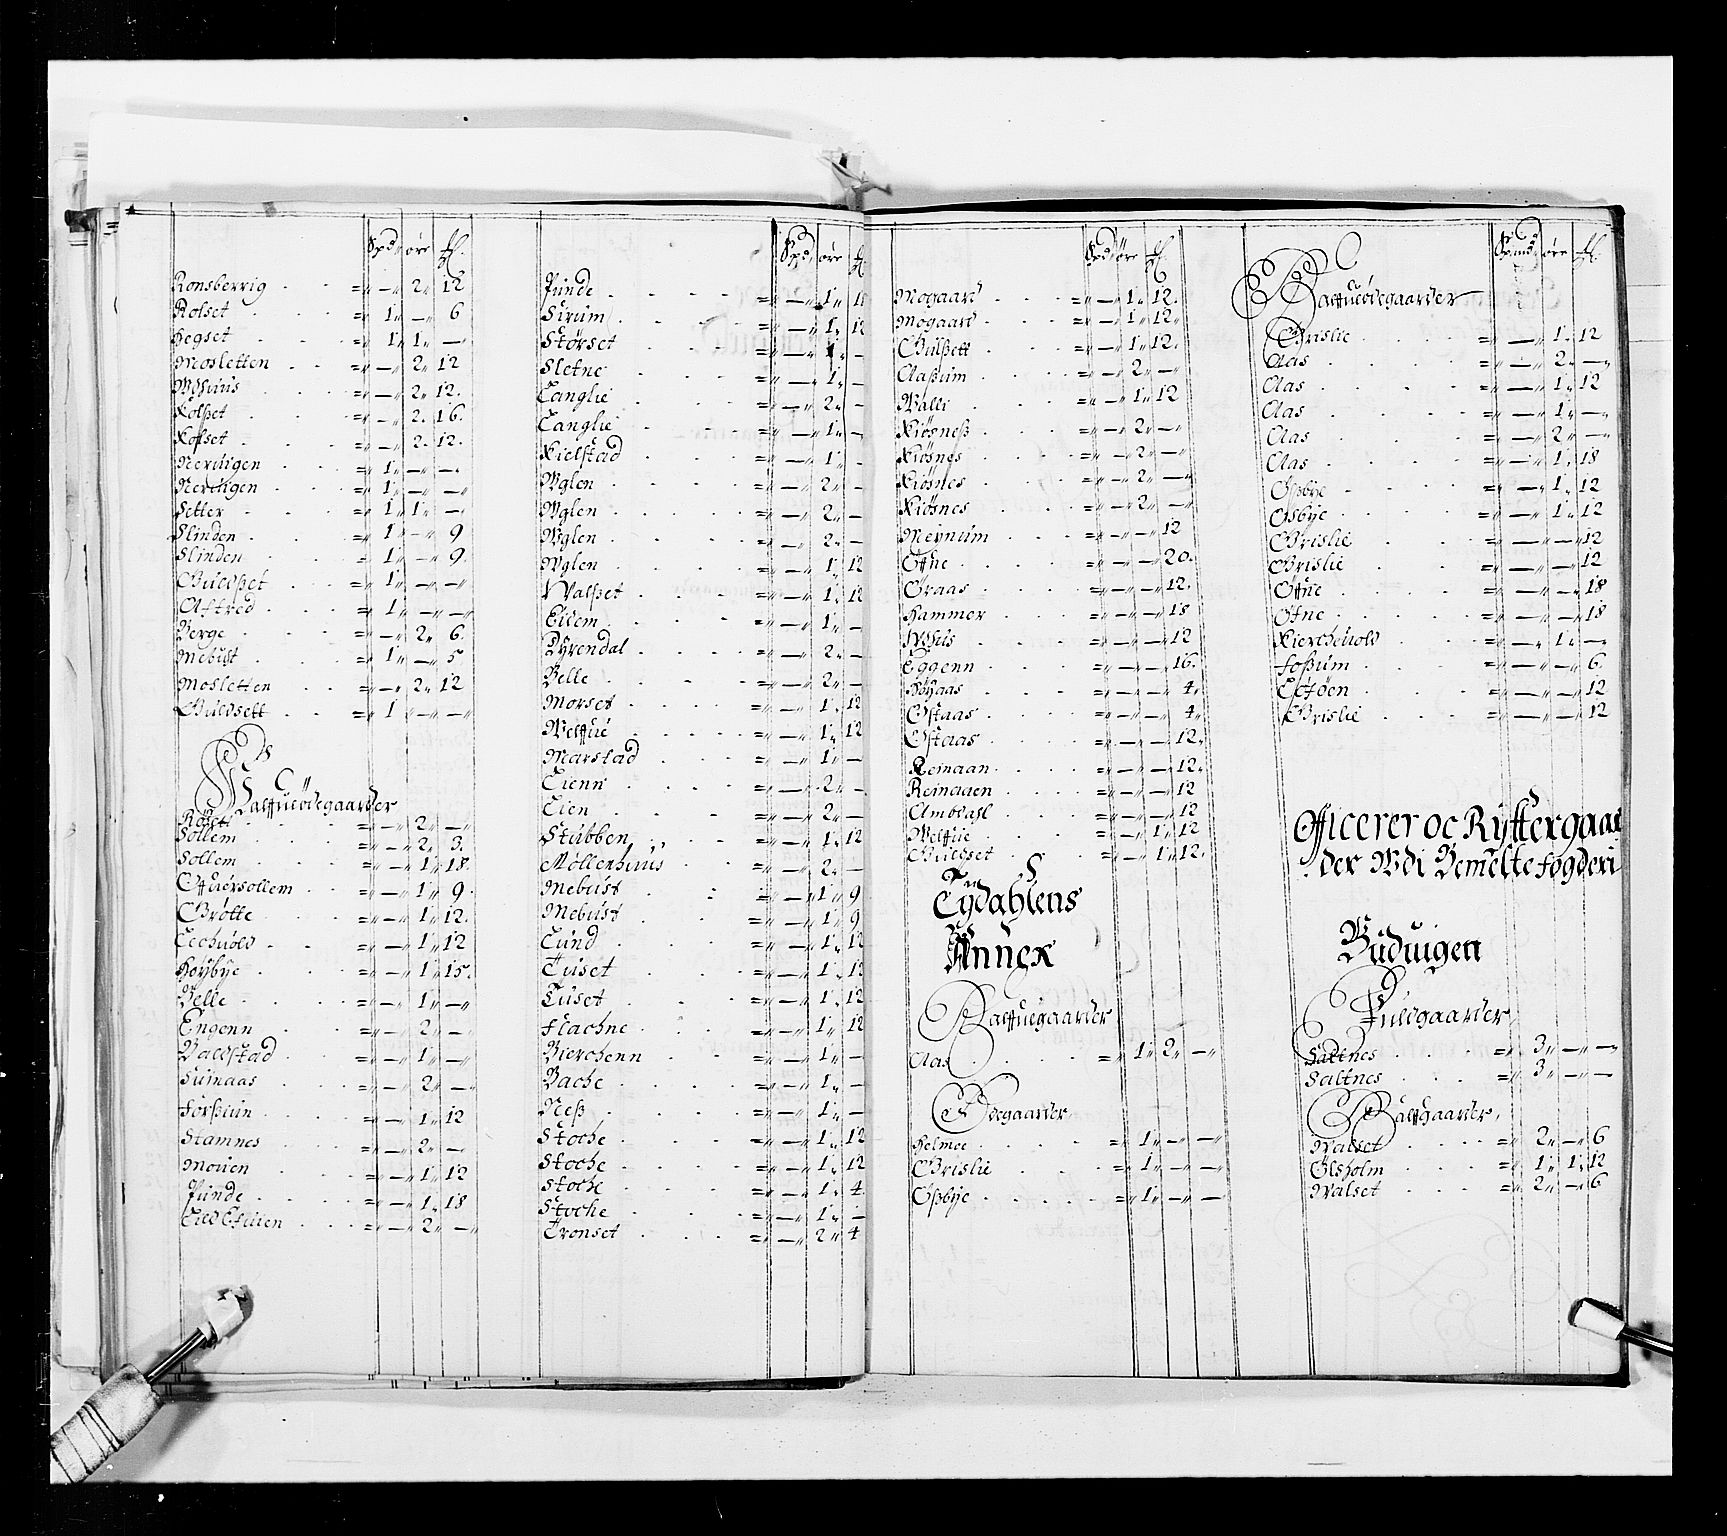 Spd øre
Ronsberrig = — 2 12
Rolset = 1 — 6
Hegset = 1 1 —
Mosletten = — 2 12
= — 2 12
Kolßet = — 2 16
Kolset = — 2 12
Neruigen = 1 — —
Neruigen = 1 — —
Setter = 1 1 —
Slinden = 1 — 9
Slinden = 1 — 9
Guldßet = 1 — —
Aftred = 1 — —
Berge = — 2 6
Mebust = 1 — 5
Mosletten = — 2 12
Guldsett = 1 — —
Halffueødegaarder
= — 2 —
Sollem = — 2 3
Sollem = — 1 18
Offuersollem = — 1 9
Grøtte = — 1 12
Echuold = — 1 12
Høybye = — 1 15
Belle = — 1 —
Engenn = — 2 —
Baldstad = — 1 —
Suinaas = — 2 —
= — 1 12
Stamnes = — 2 —
Mouen = — 1 12
Funde = — 1 18
= — 2 —
Spd øre
Funde = — 1
Sirum = — 1 12
Størset = — 1 —
Sletne = — 1 —
Langlie = — 2 —
Langlie = — 1 —
Kielstad = — 1 —
Uglen = — 2 —
Uglen = — 2 —
Uglen = — 2 —
Uglen = — 1 12
Walset = — 1 12
Eidem = — 1 —
Dyrendal = — 2 —
Belle = — 2 —
Morset = — 1 12
Welffue = — 1 12
Marstad = — 1 —
Lienn = — 2 —
Lien = — 2 —
Stubben = — 1 12
Møllenhuus = — 2 —
Mebust = — 1 9
Mebust = — 1 9
Lund = — 1 12
Tuset = — 1
Tuset = — 1 12
Flachne = — 1 12
Bierchenn = — 1 —
Bache = — 1 —
Neß = — 1 —
Stoche = — 1 12
Stoche = — 1 12
Stoche = — 1 4
Stoche = — 1 —
Tronset = — 2 4
Spd øre
Mogaard = — 1 12
Mogaard = — 1 12
Gulßett = — 1 12
Aaßum = — 2 —
Walli = — 1 12
Kiøsneß = — 2 —
Kiøsnes = — 2 —
Kiøsnes = — 2 —
Kiøsnes = — 2 —
Meynum = — — 12
Øffne = — — 20
Graas = — — 12
Hammer = — — 18
= — — 12
Eggenn = — — 16
= — — 4
Østaas = — — 4
Østaas = — — 12
Reinaan = — — 12
Reinaaen = — — 12
Ambdahl = — — 12
Welffue = — 1 12
Guldset = — 1 12
Tydahlens
Annex
Halffuegaarder
Aas = 1 2 —
Ødegaarder
Helmoe = 1 — —
Grislie = 1 — —
Øßbye = 1 — —
Spund øre
Halffueødegaarder
Grislie = — 1 12
Aas = — 2 —
Aas = — 1 12
Aas = — 1 —
Aas = — 2 —
Aas = — 1 18
Øßbye = — 1 12
Øsbye = — 1 12
Grislie = — — 12
Grislie = — — 12
Øffne = — — 18
Øfne = — — 18
Kierchuold = — 1 —
Foßum = — — 6
= — — 12
Grislie = — — 12
Officerer oc Ryttergaar
der Udi Bemelte fogderi
Buduigen
Fuldgaarder
Saltnes = 3 — —
Saltnes = 3 — —
Halffgaarder
Walset = 2 — 6
Ølsholm = 1 1 12
Walset = 2 — 6